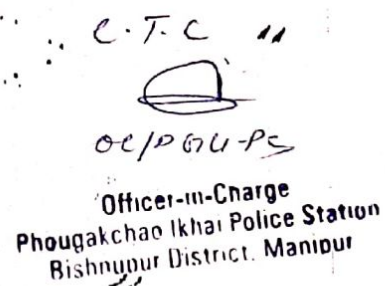 C.T.C "
OC/PGK-PS
Officer-in-Charge
Phougakchao Ikhai Police Station
Bishnupur District, Manipur